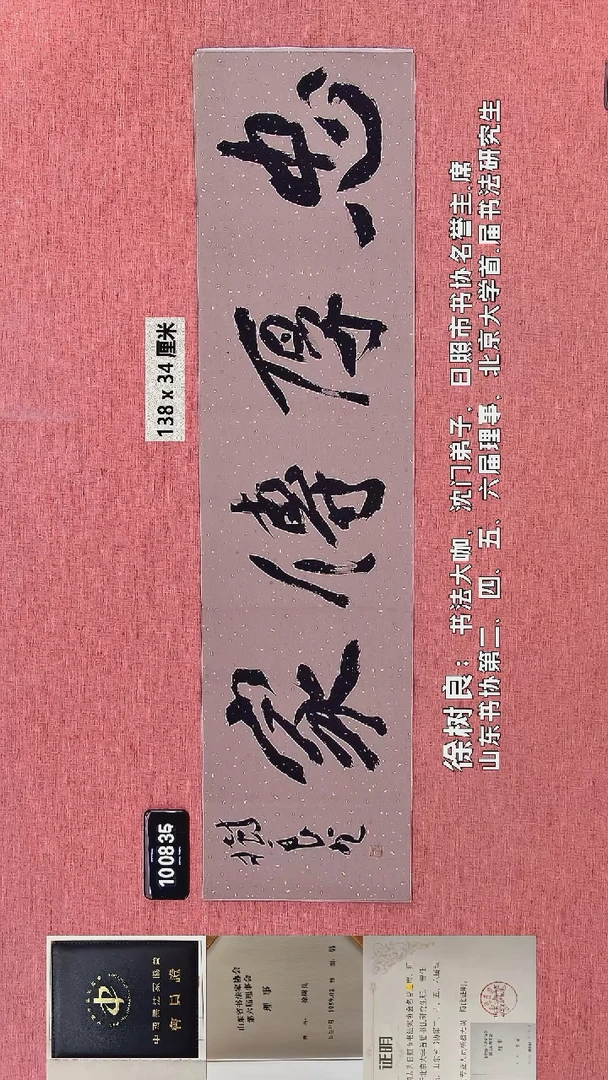 138 x 34 厘米
忠厚傳家
樹良
徐树良：书法大咖，沈门弟子，日照市书协名誉主.席
山东书协第二、四、五、六届理事，北京大学首.届书法研究生
100835
中國書法家協會
會員證
山东省书法家协会
第六届理事会
理事
证明